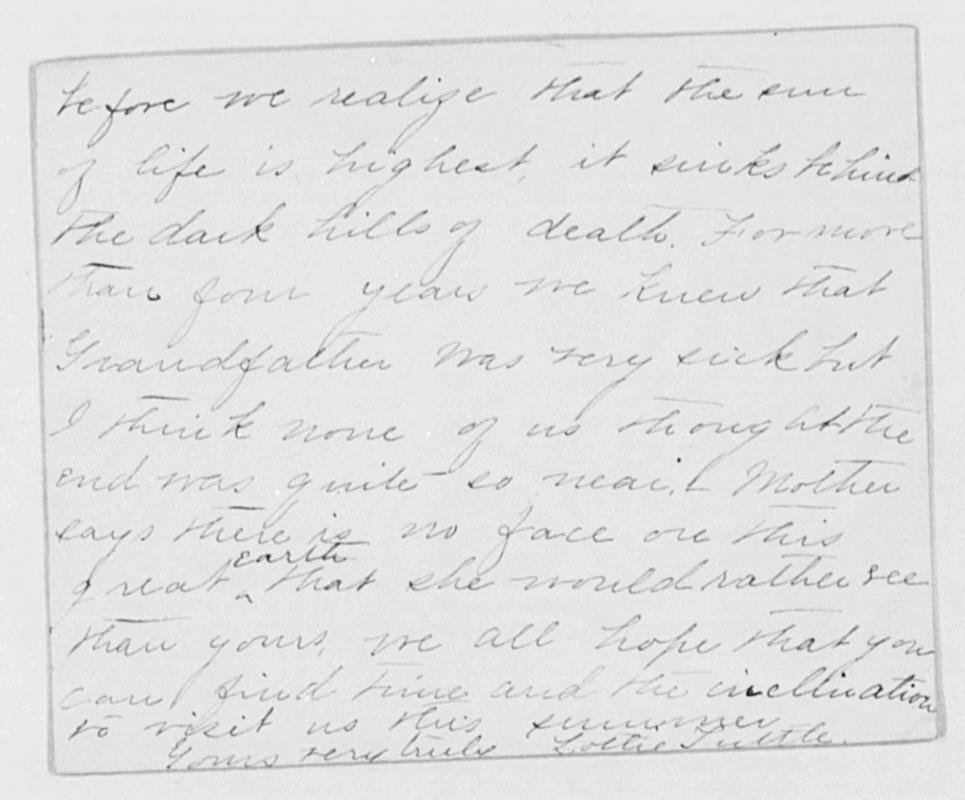 before we realize that the sun
of life is highest, it sinks behind
the dark hills of death. For more
than four years we knew that
Grandfather was very sick but
I think none of us thought the
end was quite so near. Mother
says there is no face on this
great earth that she would rather see
than yours, we all hope that you
can find time and the inclination
to visit us this summer
Yours very truly Lottie Tuttle.